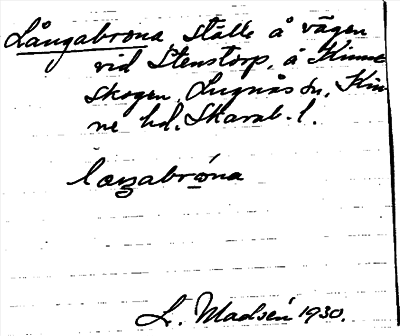 Långabrona ställe å vägen
vid Stenstorp, å Kinne
skogen, Lugnås sn, Kin
ne hd. Skarab. l.
L. Madsén 1930.